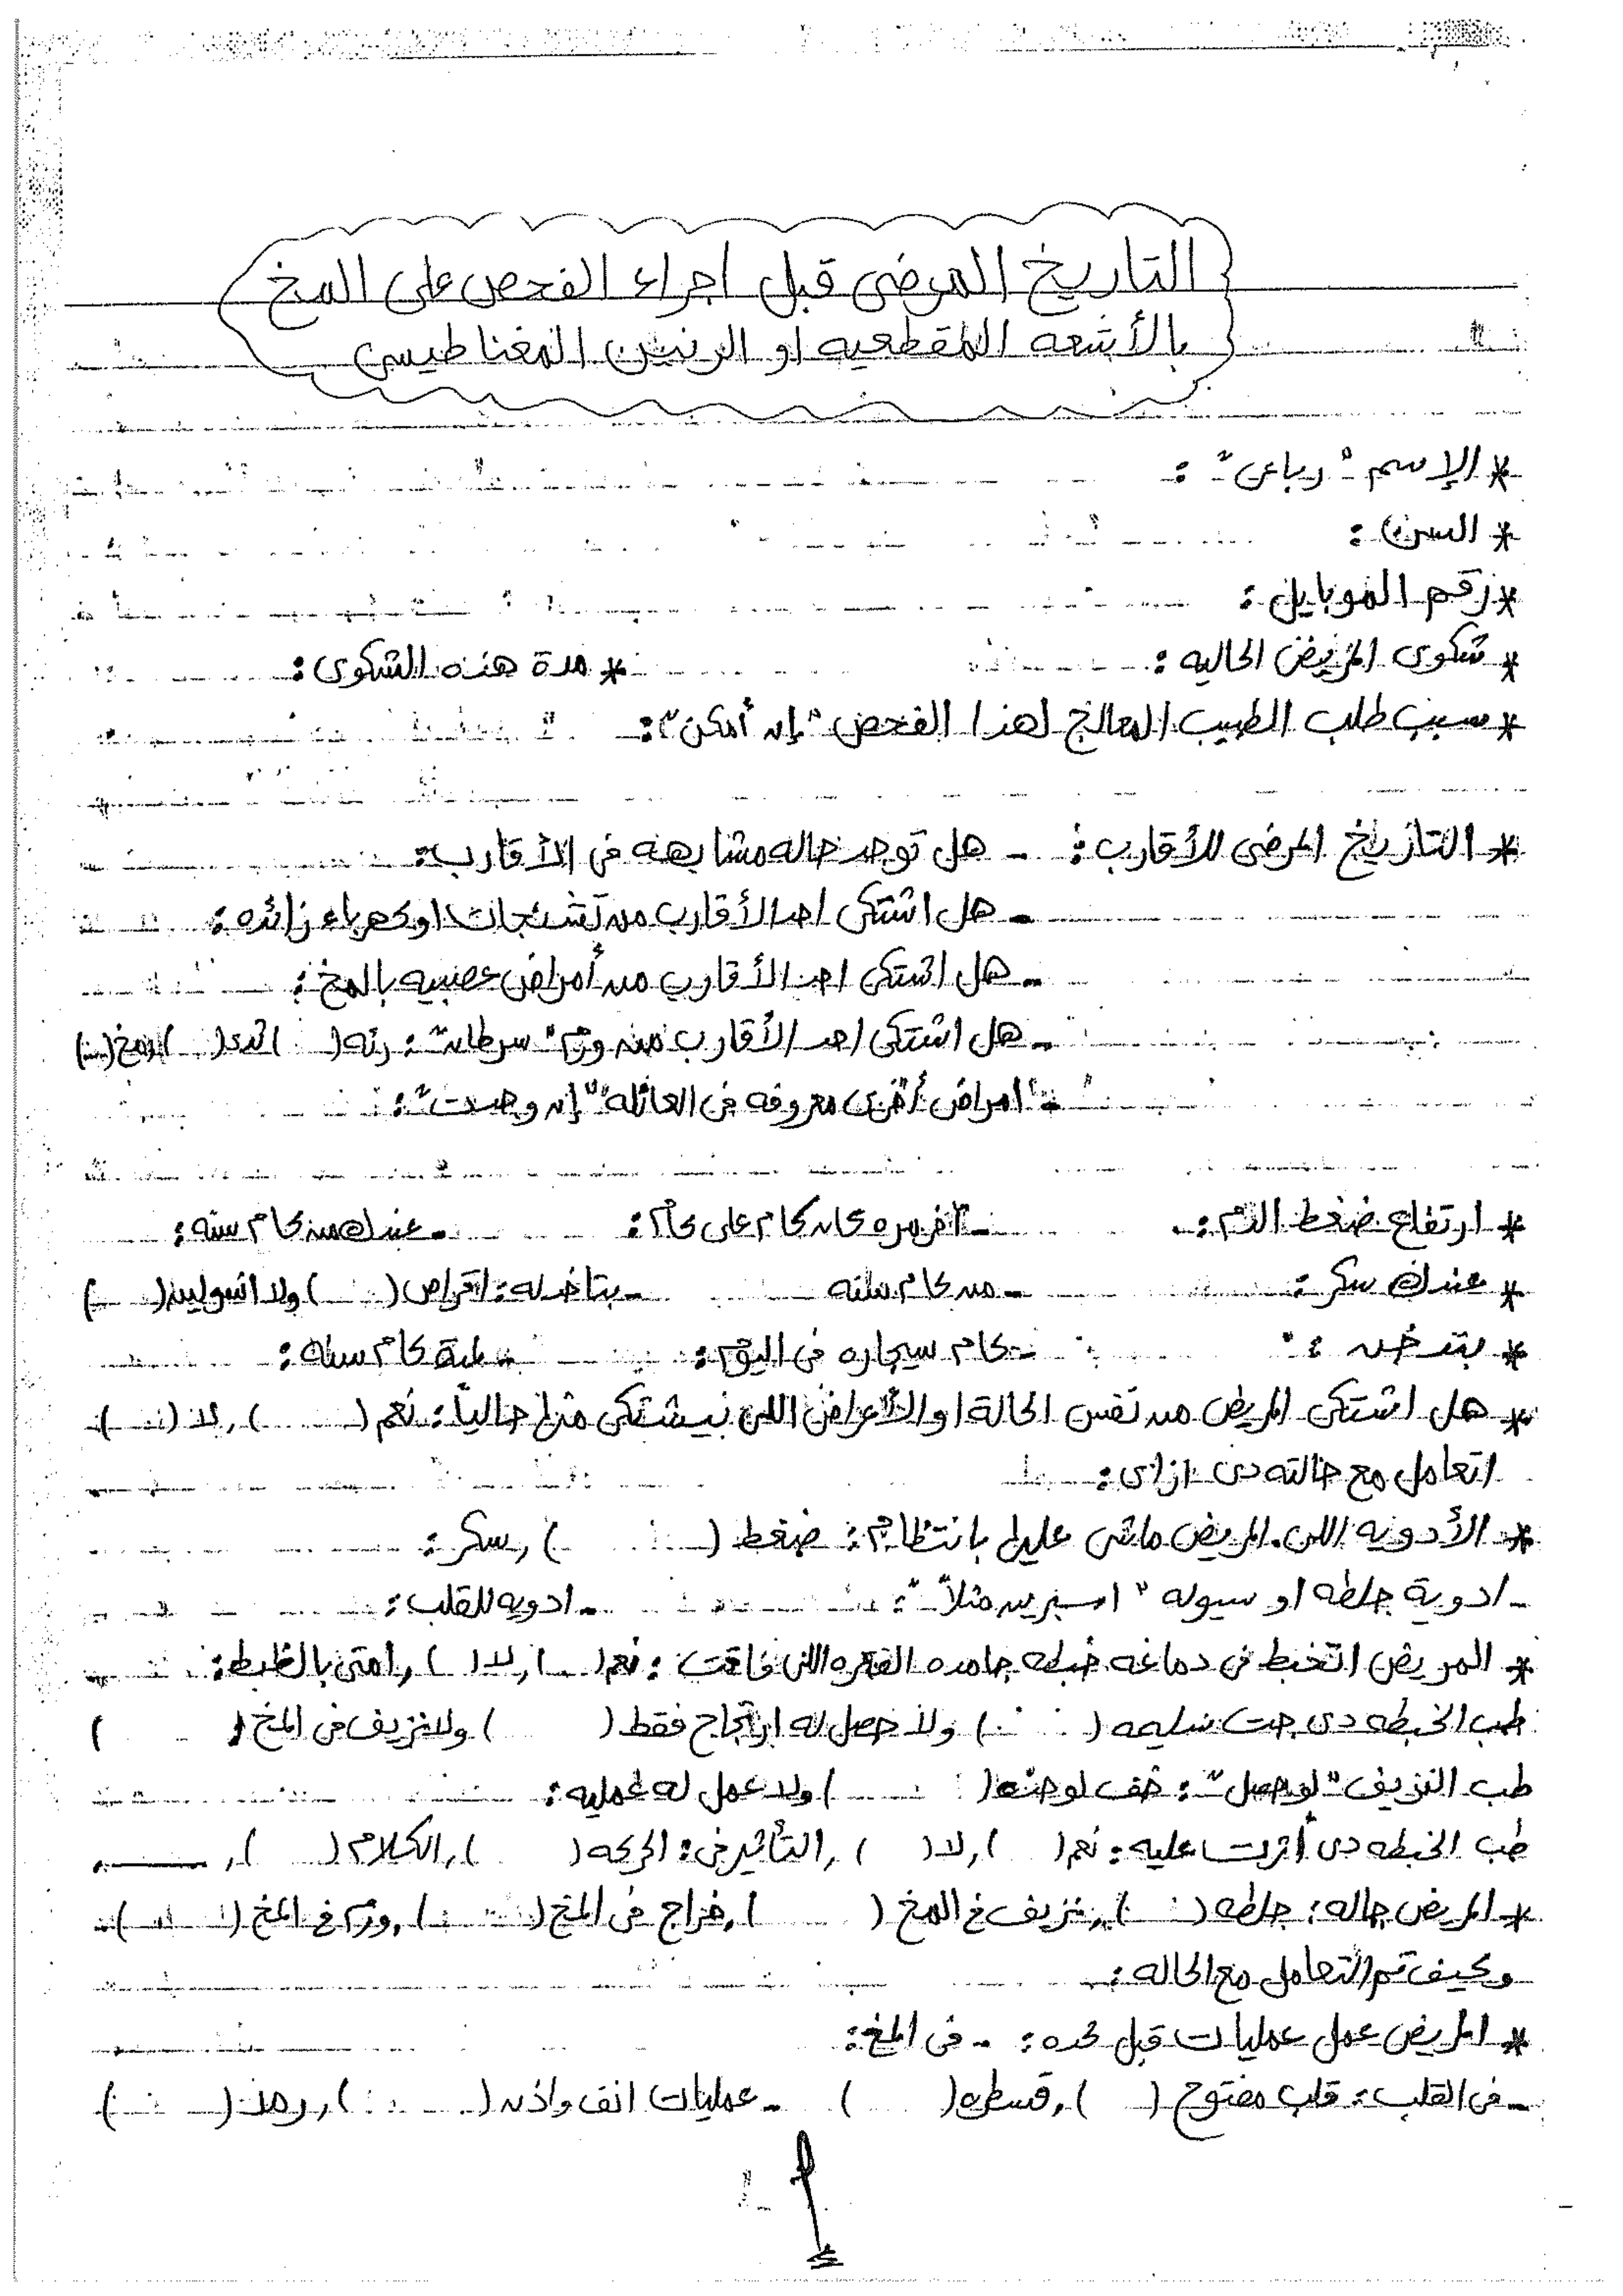 التاريخ المرضى قبل اجراء الفحص على المخ
بالأشعه المقطعيه او الرنين المغناطيسى
* الإسم "رباعى" :
* السن :
* رقم الموبايل :
* شكوى المريض الحاليه : * مدة هذه الشكوى :
* سبب طلب الطبيب المعالج لهذا الفحص "إن أمكن" :
* التاريخ المرضى للأقارب : - هل توجد حاله مشابهه فى الأقارب :
- هل اشتكى احد الأقارب من تشنجات او كهرباء زائده :
- هل اشتكى احد الأقارب من أمراض عصبيه بالمخ :
- هل اشتكى احد الأقارب من ورم "سرطان" : رئه ( ) ثدى ( ) مخ ( )
- امراض أخرى معروفه فى العائله "إن وجدت" :
* ارتفاع ضغط الدم : - آخر مره كان كام على كام : - عندك من كام سنه :
* عندك سكر : - من كام سنه - بتاخد له : اقراص ( ) ولا انسولين ( )
* بتدخن : - كام سيجاره فى اليوم : - لمدة كام سنه :
* هل اشتكى المريض من نفس الحالة او الأعراض اللى بيشتكى منها حالياً : نعم ( ) , لا ( )
اتعامل مع حالته دى ازاى :
* الأدويه اللى المريض ماشى عليها بانتظام : ضغط ( ) , سكر :
- ادوية جلطه او سيوله "اسبرين مثلاً" : - ادويه للقلب :
* المريض اتخبط فى دماغه خبطه جامده الفتره اللى فاتت : نعم ( ) , لا ( ) , امتى بالظبط :
طب الخبطه دى جت سليمه ( ) ولا حصل له ارتجاج فقط ( ) ولا نزيف فى المخ ( )
طب النزيف "لو حصل" : خف لوحده ( ) ولا عمل له عمليه :
طب الخبطه دى أثرت عليه : نعم ( ) , لا ( ) , التأثير فى : الحركه ( ) , الكلام ( ) ,
* المريض جاله : جلطه ( ) , نزيف فى المخ ( ) , خراج فى المخ ( ) , ورم فى المخ ( )
وكيف تم التعامل مع الحاله :
* المريض عمل عمليات قبل كده : - فى المخ :
- فى القلب : قلب مفتوح ( ) , قسطره ( ) - عمليات انف واذن ( ) , رمد ( )